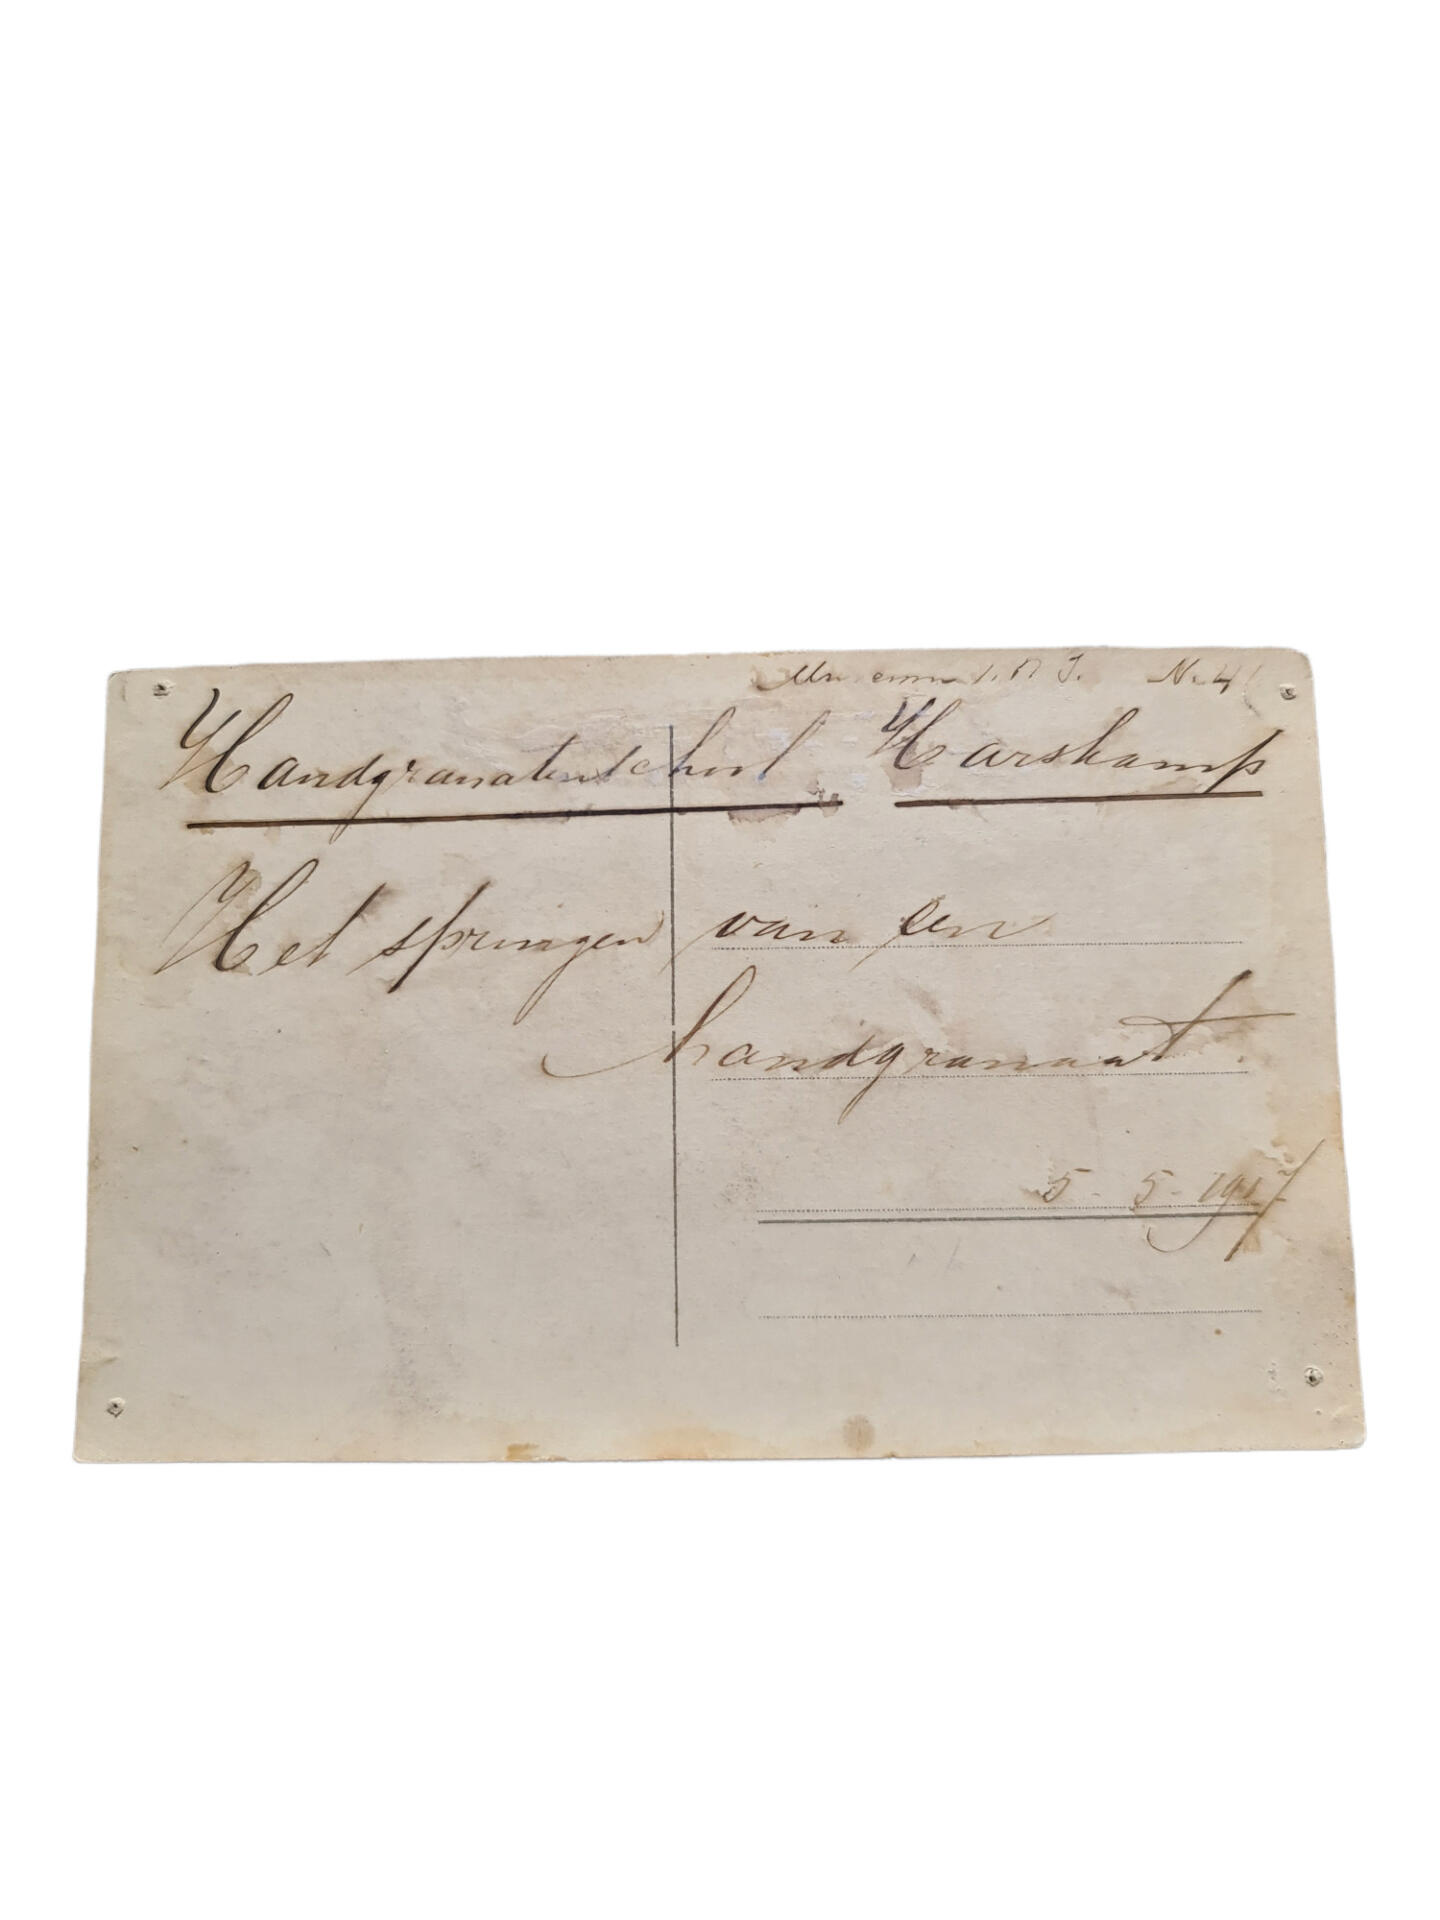 Museum N. 4
Handgranatenschool Harskamp
Het springen van een
handgranaat.
5-5-1917